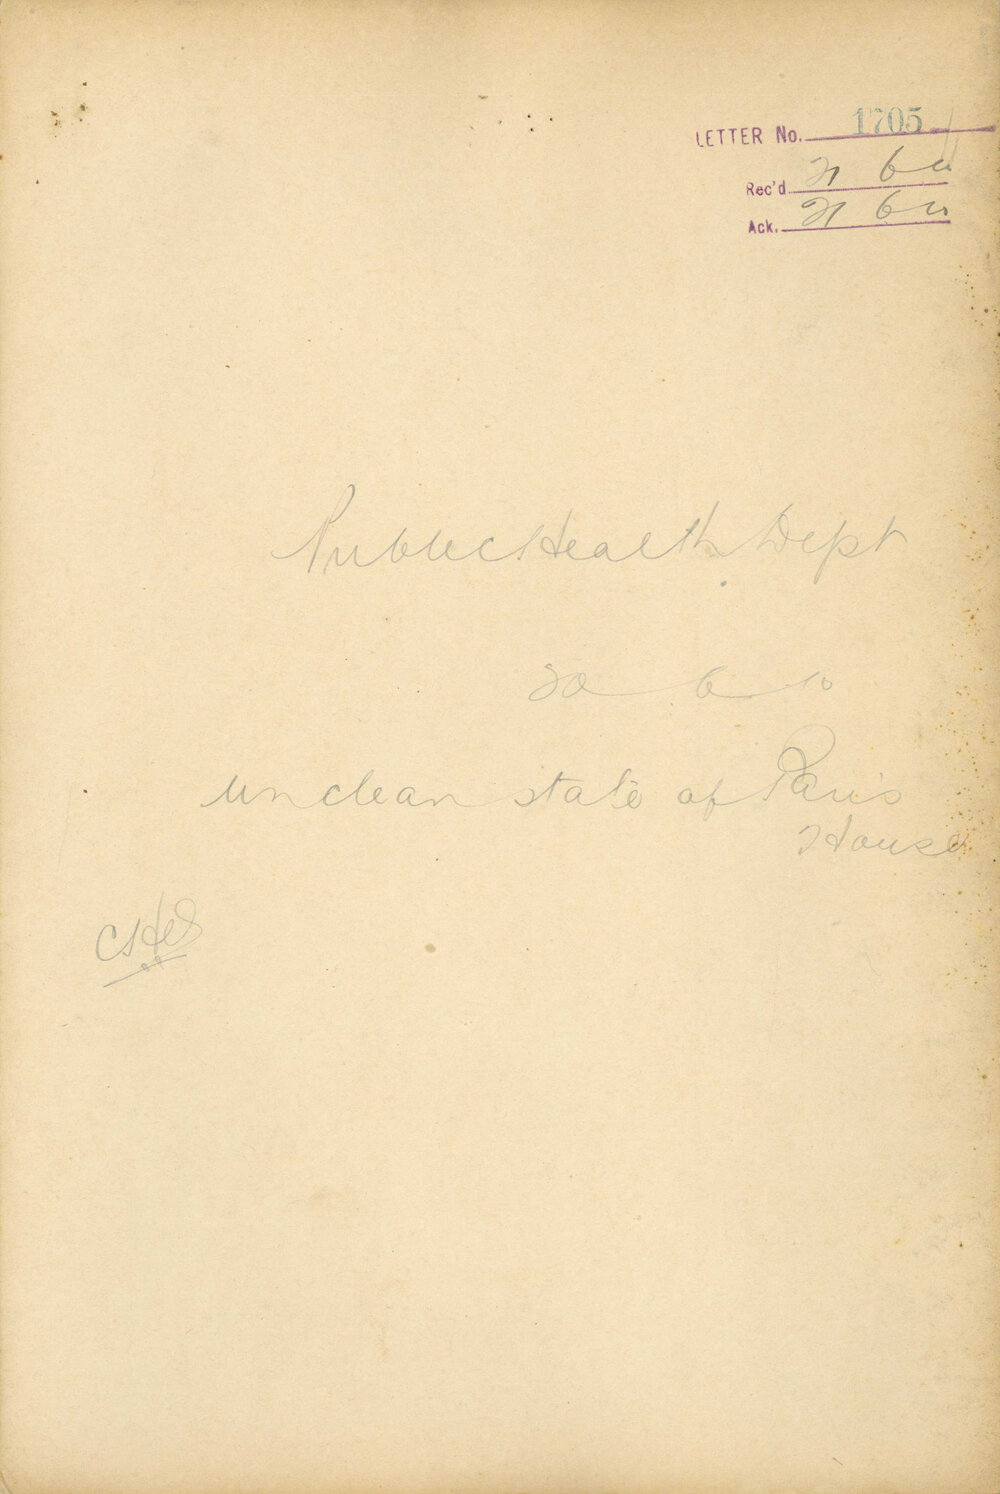 LETTER No. 1705
Rec'd 21 6 10
Ack. 21 6 10
Public Health Dept
20 6 10
unclean state of Paris
House